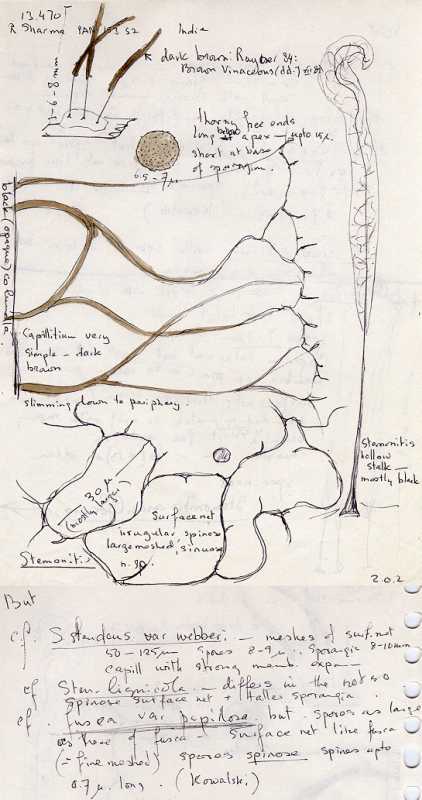 13.4705
R Sharma PAN 153 S2
India
dark brown: Rayner 84:
Brown Vinaceous (dd.)
thorny free ends
long below apex — upto 15µ.
short at base
of sporangium.
6.5 - 7µ
black (opaque) columella.
Capillitium very
simple - dark
brown
slimming down to periphery.
30µ
(mostly larger)
Surface net
irregular, spinose
large meshed, sinuose
n. sp.
Stemonitis
Stemonitis
hollow
stalk —
mostly black
2.0.2
But
cf. S. splendens var webberi. — meshes of surf. net
50 - 125µm spores 8-9µ. Sporangia 8-10mm
capill with strong memb. expan—
cf Stem. lignicola — differs in the not so
spinose surface net + taller sporangia.
cf. fusca var papillosa but spores as large
as those of fusca — surface net like fusca
(= fine meshed) spores spinose spines upto
0.7µ long. (Kowalski.)